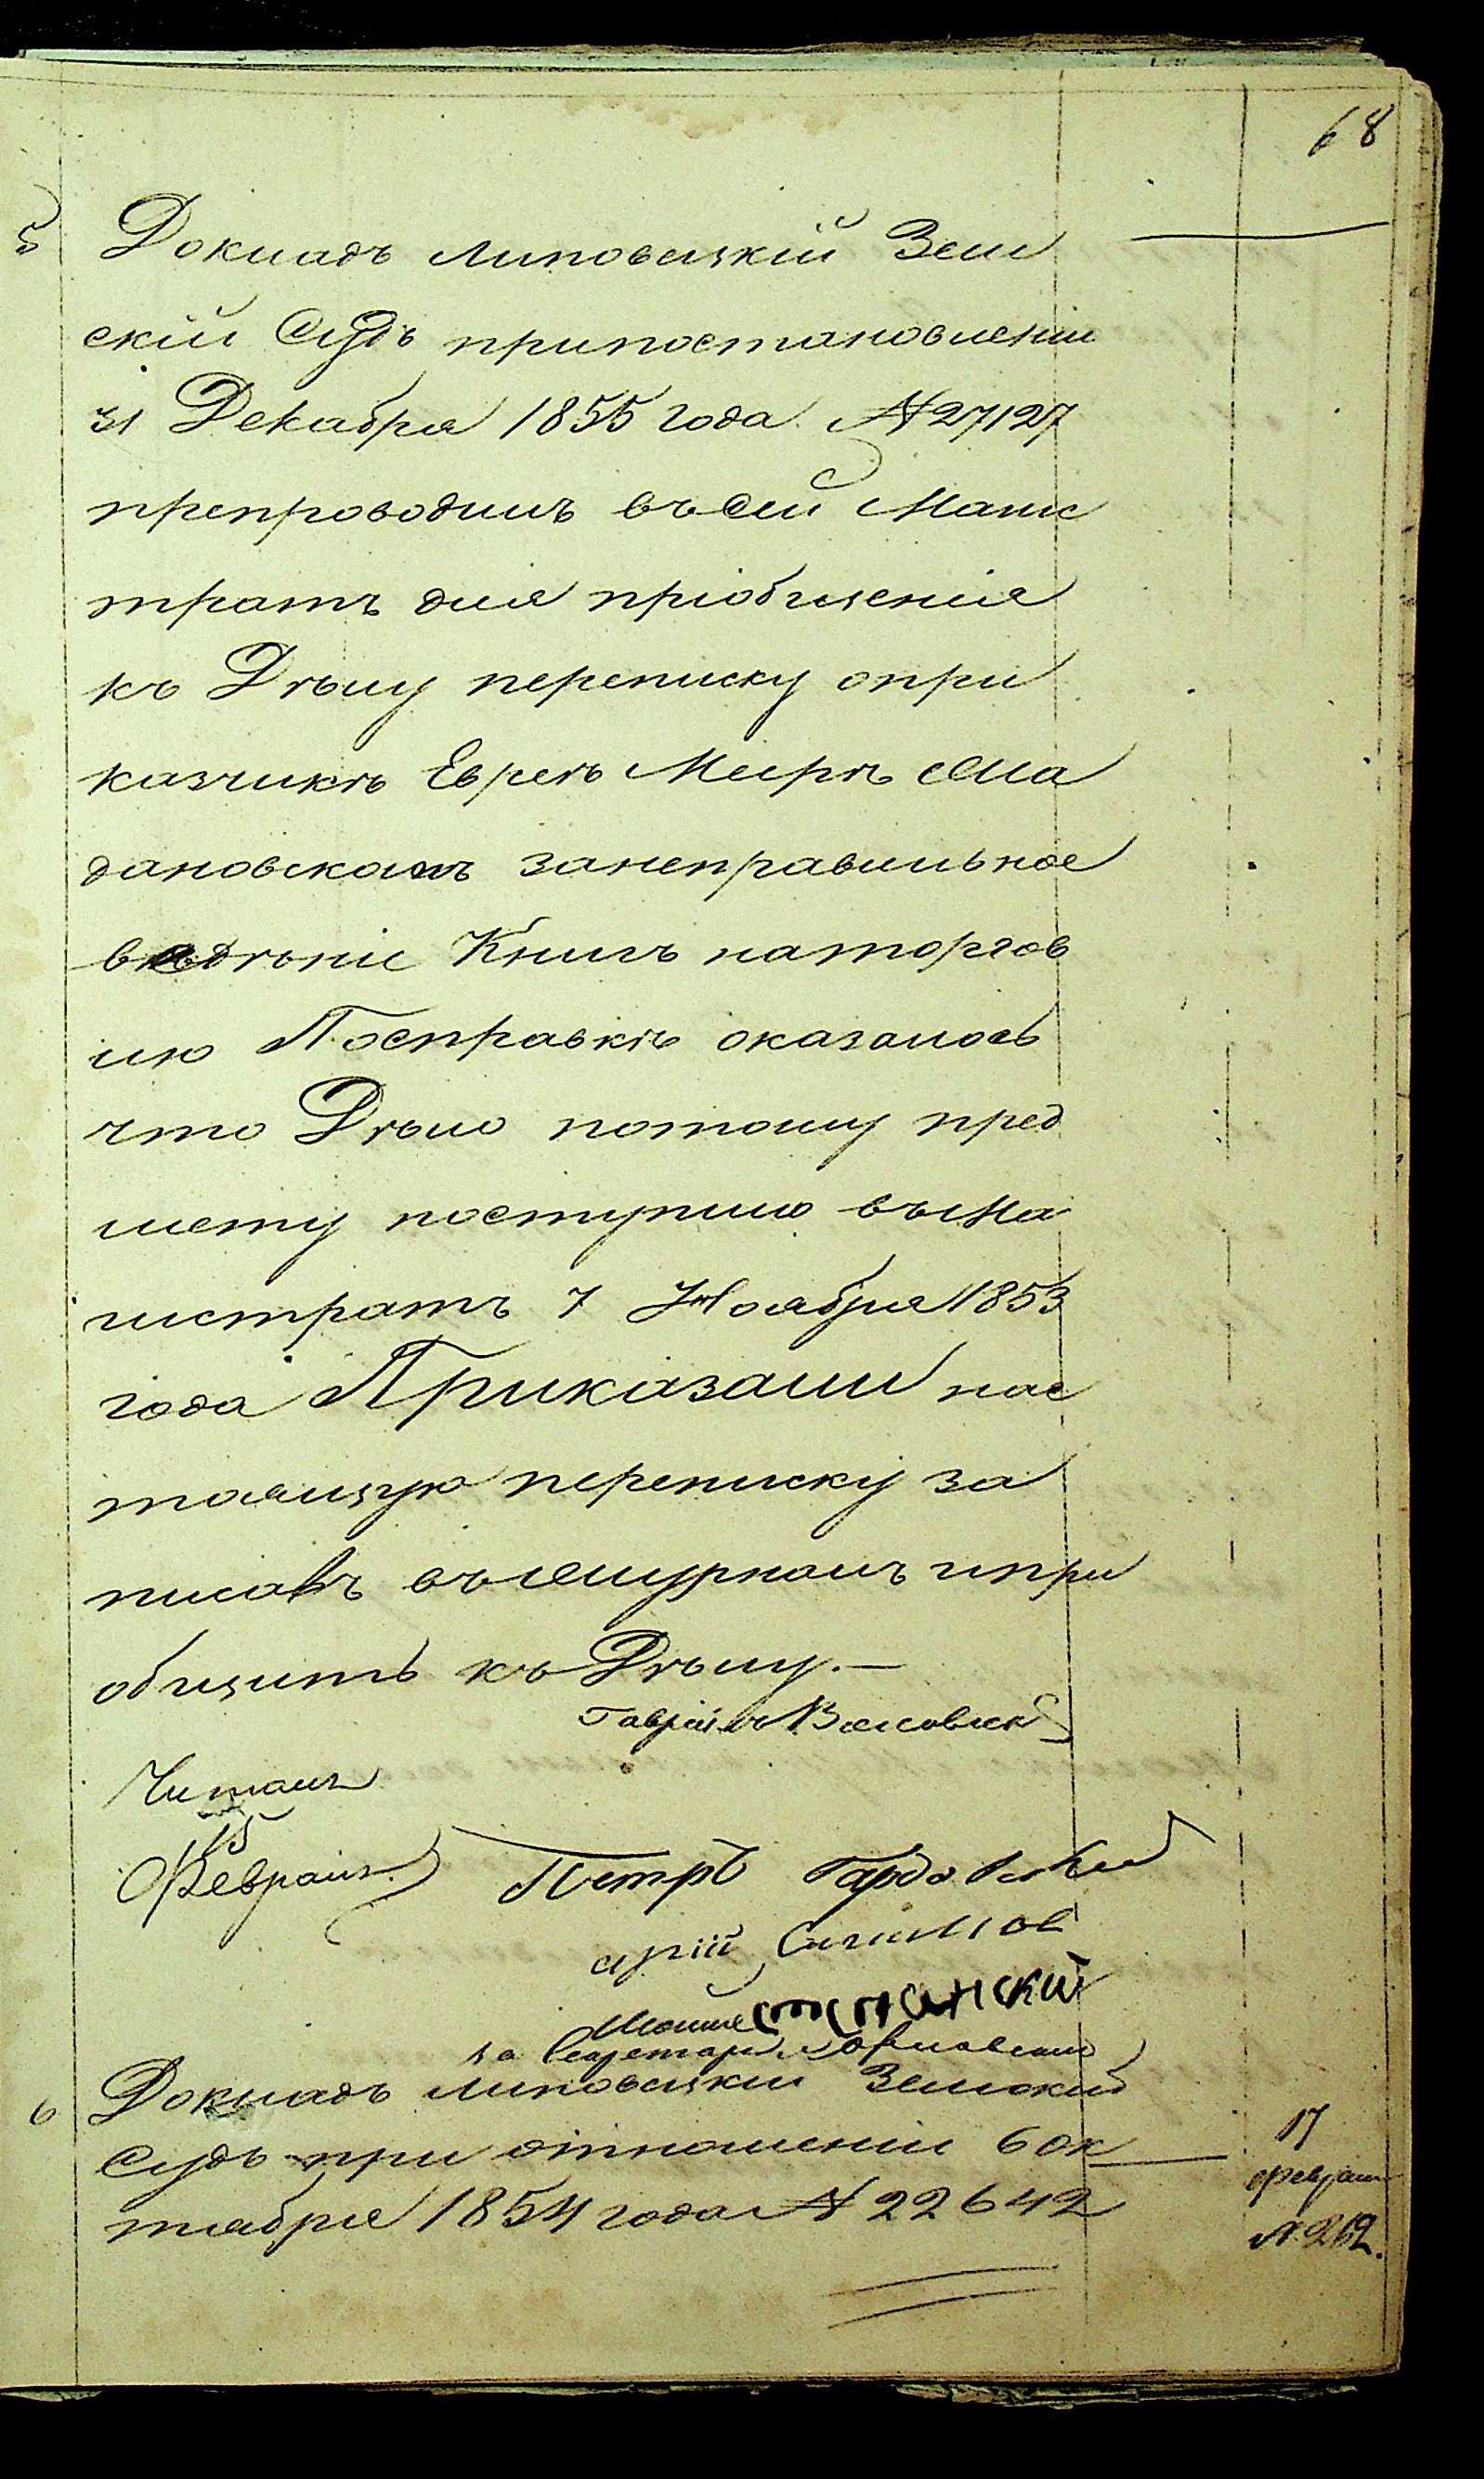 68
5 Докладъ Липовецкій Зем
скій Судъ припостановленіи
31 Декабря 1855 года №27127
препроводилъ въсей Маги
тратъ для пріобщенія
къ Дѣлу переписку опри
казчикѣ Евреѣ Меирѣ Сла
дановскомъ занеправильное
ведѣніе Книгъ наторгов
лю Посправкѣ оказалось
что Дѣло потому пред
мету поступило въма
гистратъ 7 Ноября 1853
года Приказали нас
тоящую переписку за
писавъ въжурналъ ипри
общить къ Дѣлу.—
Читалъ
15
Февраля
Петръ
за Секретаря
6 Докладъ Липовецкій Земскій
Судъ при отношеніи 6 Ок
тября 1854 года № 22642
17
февраля
№ 262.